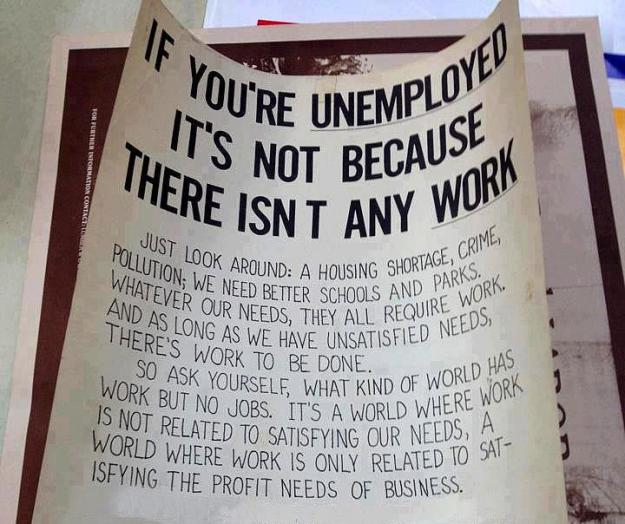 IF YOU'RE UNEMPLOYED
IT'S NOT BECAUSE
THERE ISN T ANY WORK
JUST LOOK AROUND: A HOUSING SHORTAGE, CRIME,
POLLUTION; WE NEED BETTER SCHOOLS AND PARKS.
WHATEVER OUR NEEDS, THEY ALL REQUIRE WORK.
AND AS LONG AS WE HAVE UNSATISFIED NEEDS,
THERE'S WORK TO BE DONE.
SO ASK YOURSELF, WHAT KIND OF WORLD HAS
WORK BUT NO JOBS. IT'S A WORLD WHERE WORK
IS NOT RELATED TO SATISFYING OUR NEEDS, A
WORLD WHERE WORK IS ONLY RELATED TO SAT-
ISFYING THE PROFIT NEEDS OF BUSINESS.
FOR FURTHER INFORMATION CONTACT: